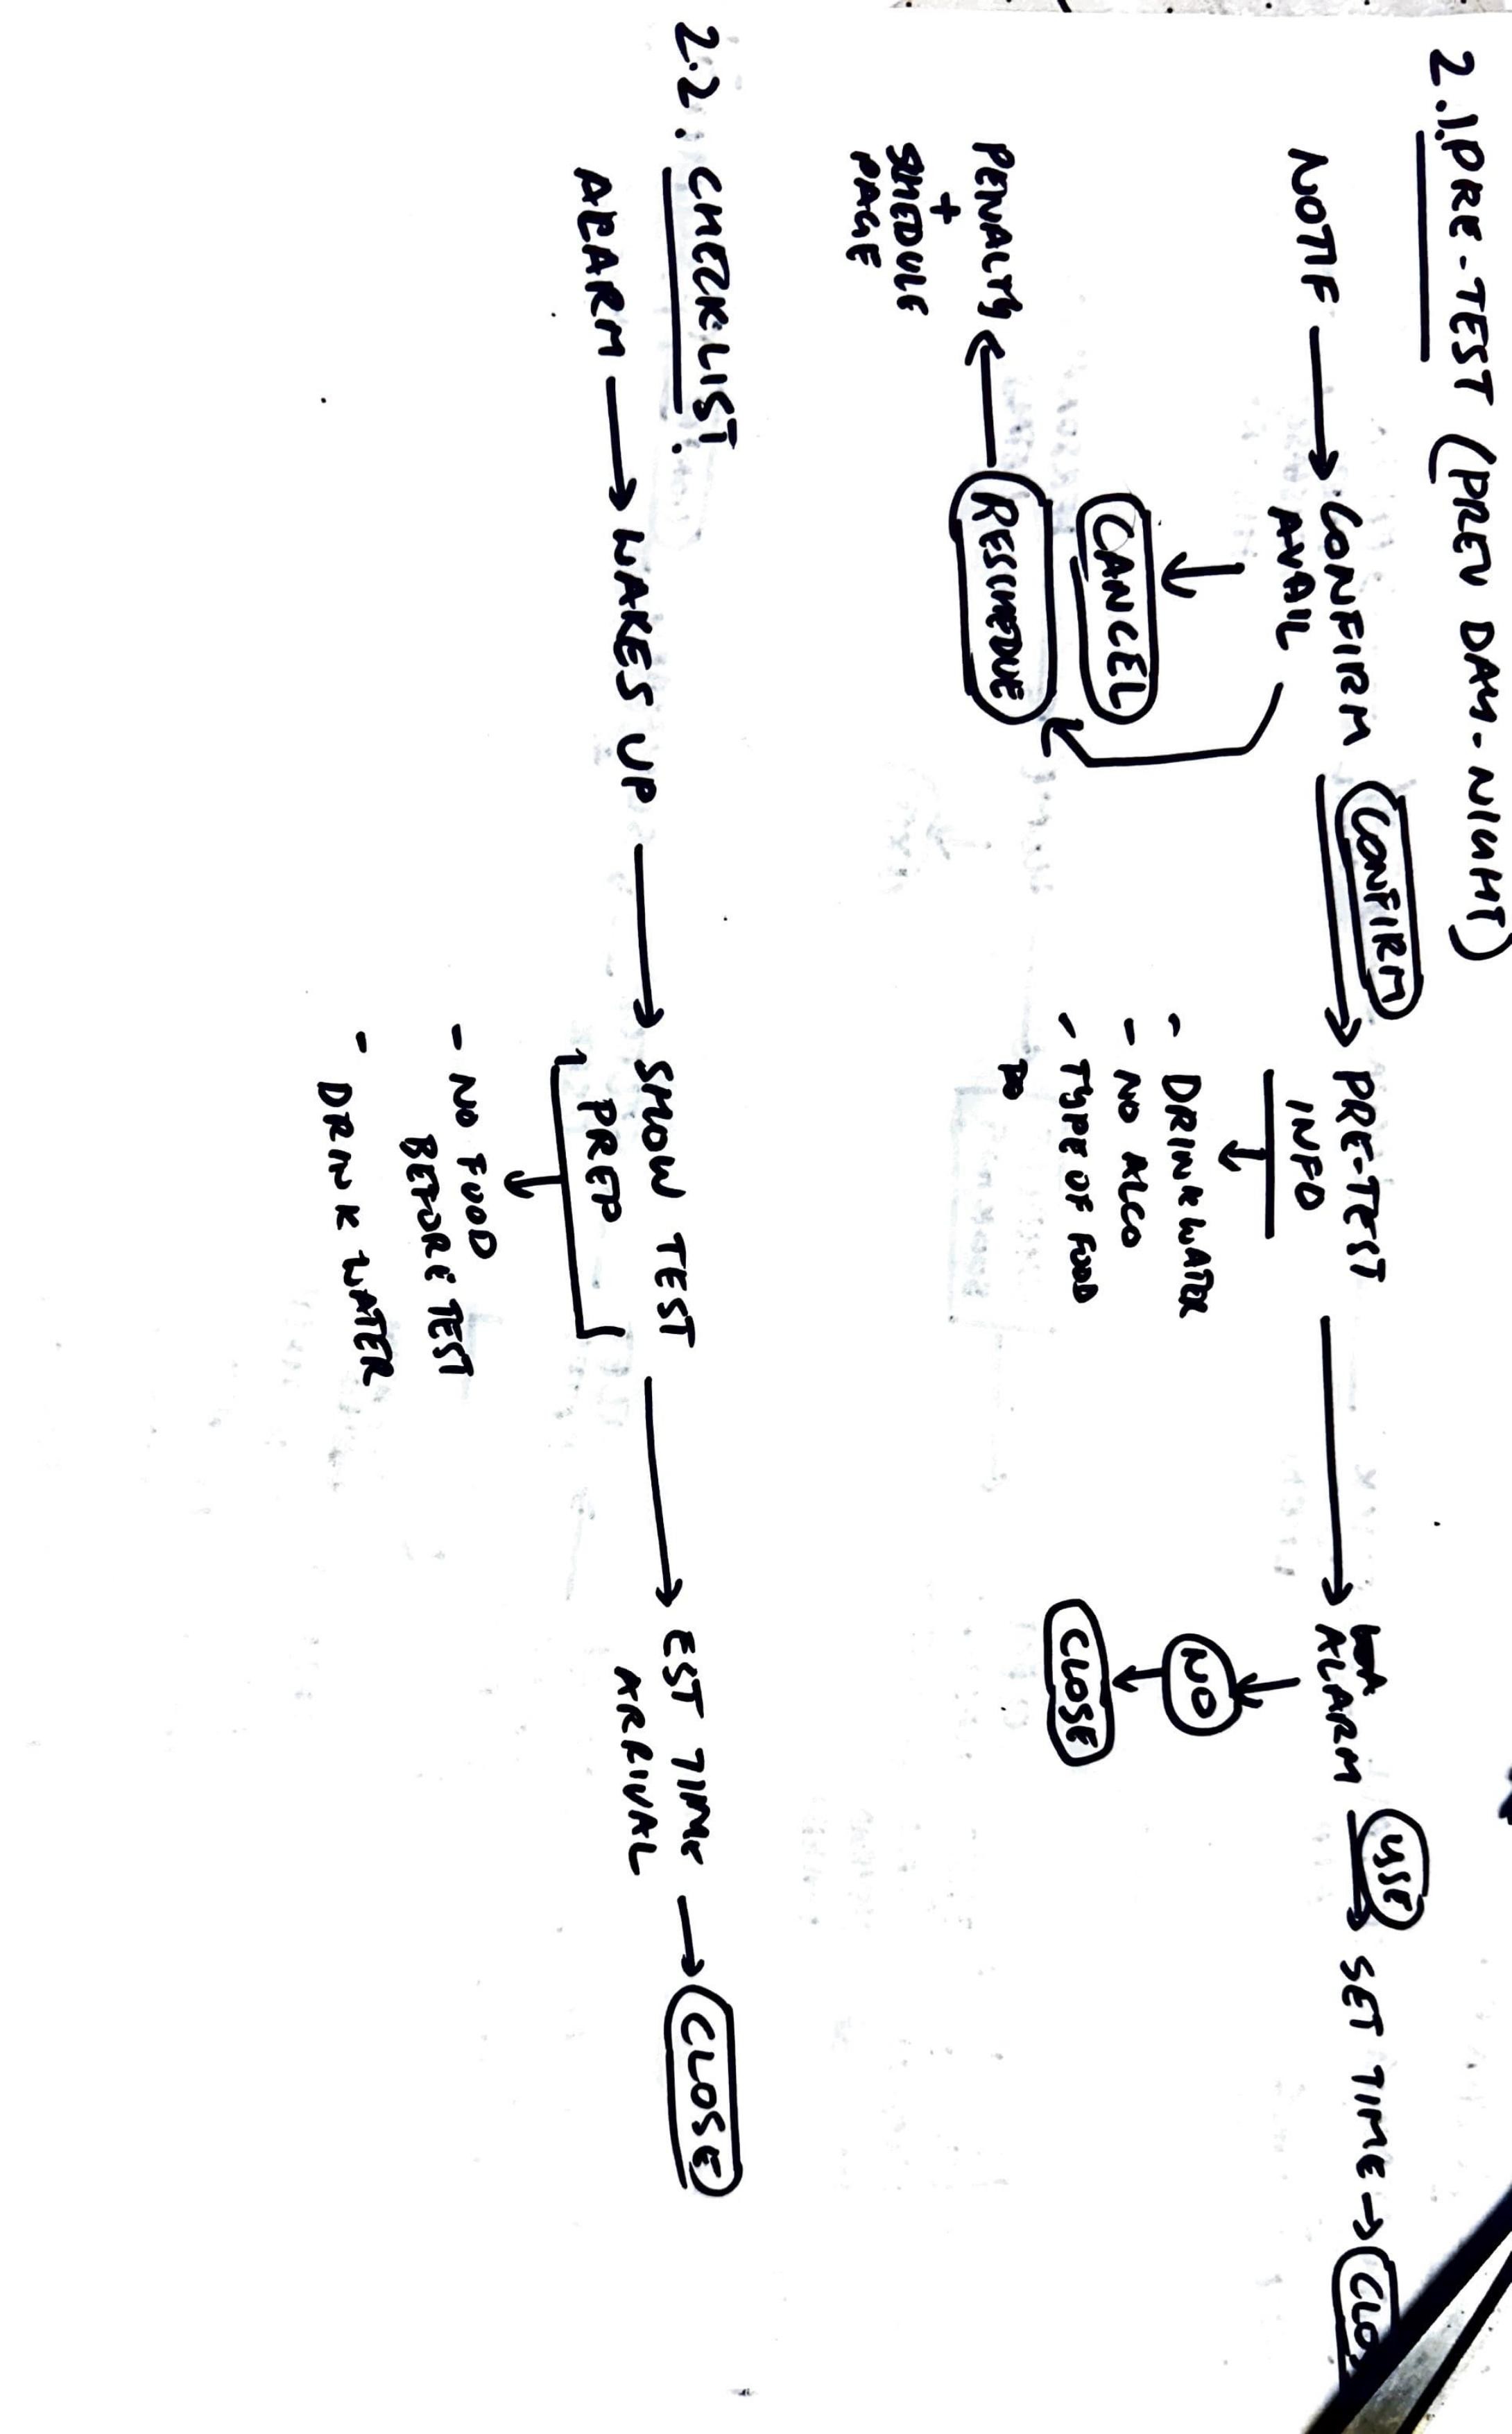 2.1. PRE-TEST (PREV DAY-NIGHT)
NOTIF → CONFIRM
AVAIL
CONFIRM
→ PRE-TEST
INFO
- DRINK WATER
- NO ALCO
- TYPE OF FOOD
→ ALARM
USE
→ SET TIME →
NO
CLOSE
CANCEL
RESCHEDUE
PENALTY
+
SHEDULE
PAGE
2.2. CHECKLIST.
ALARM → WAKES UP → SHOW TEST
PREP
→ EST TIME
ARRIVAL
→ CLOSE
- NO FOOD
BEFORE TEST
- DRINK WATER